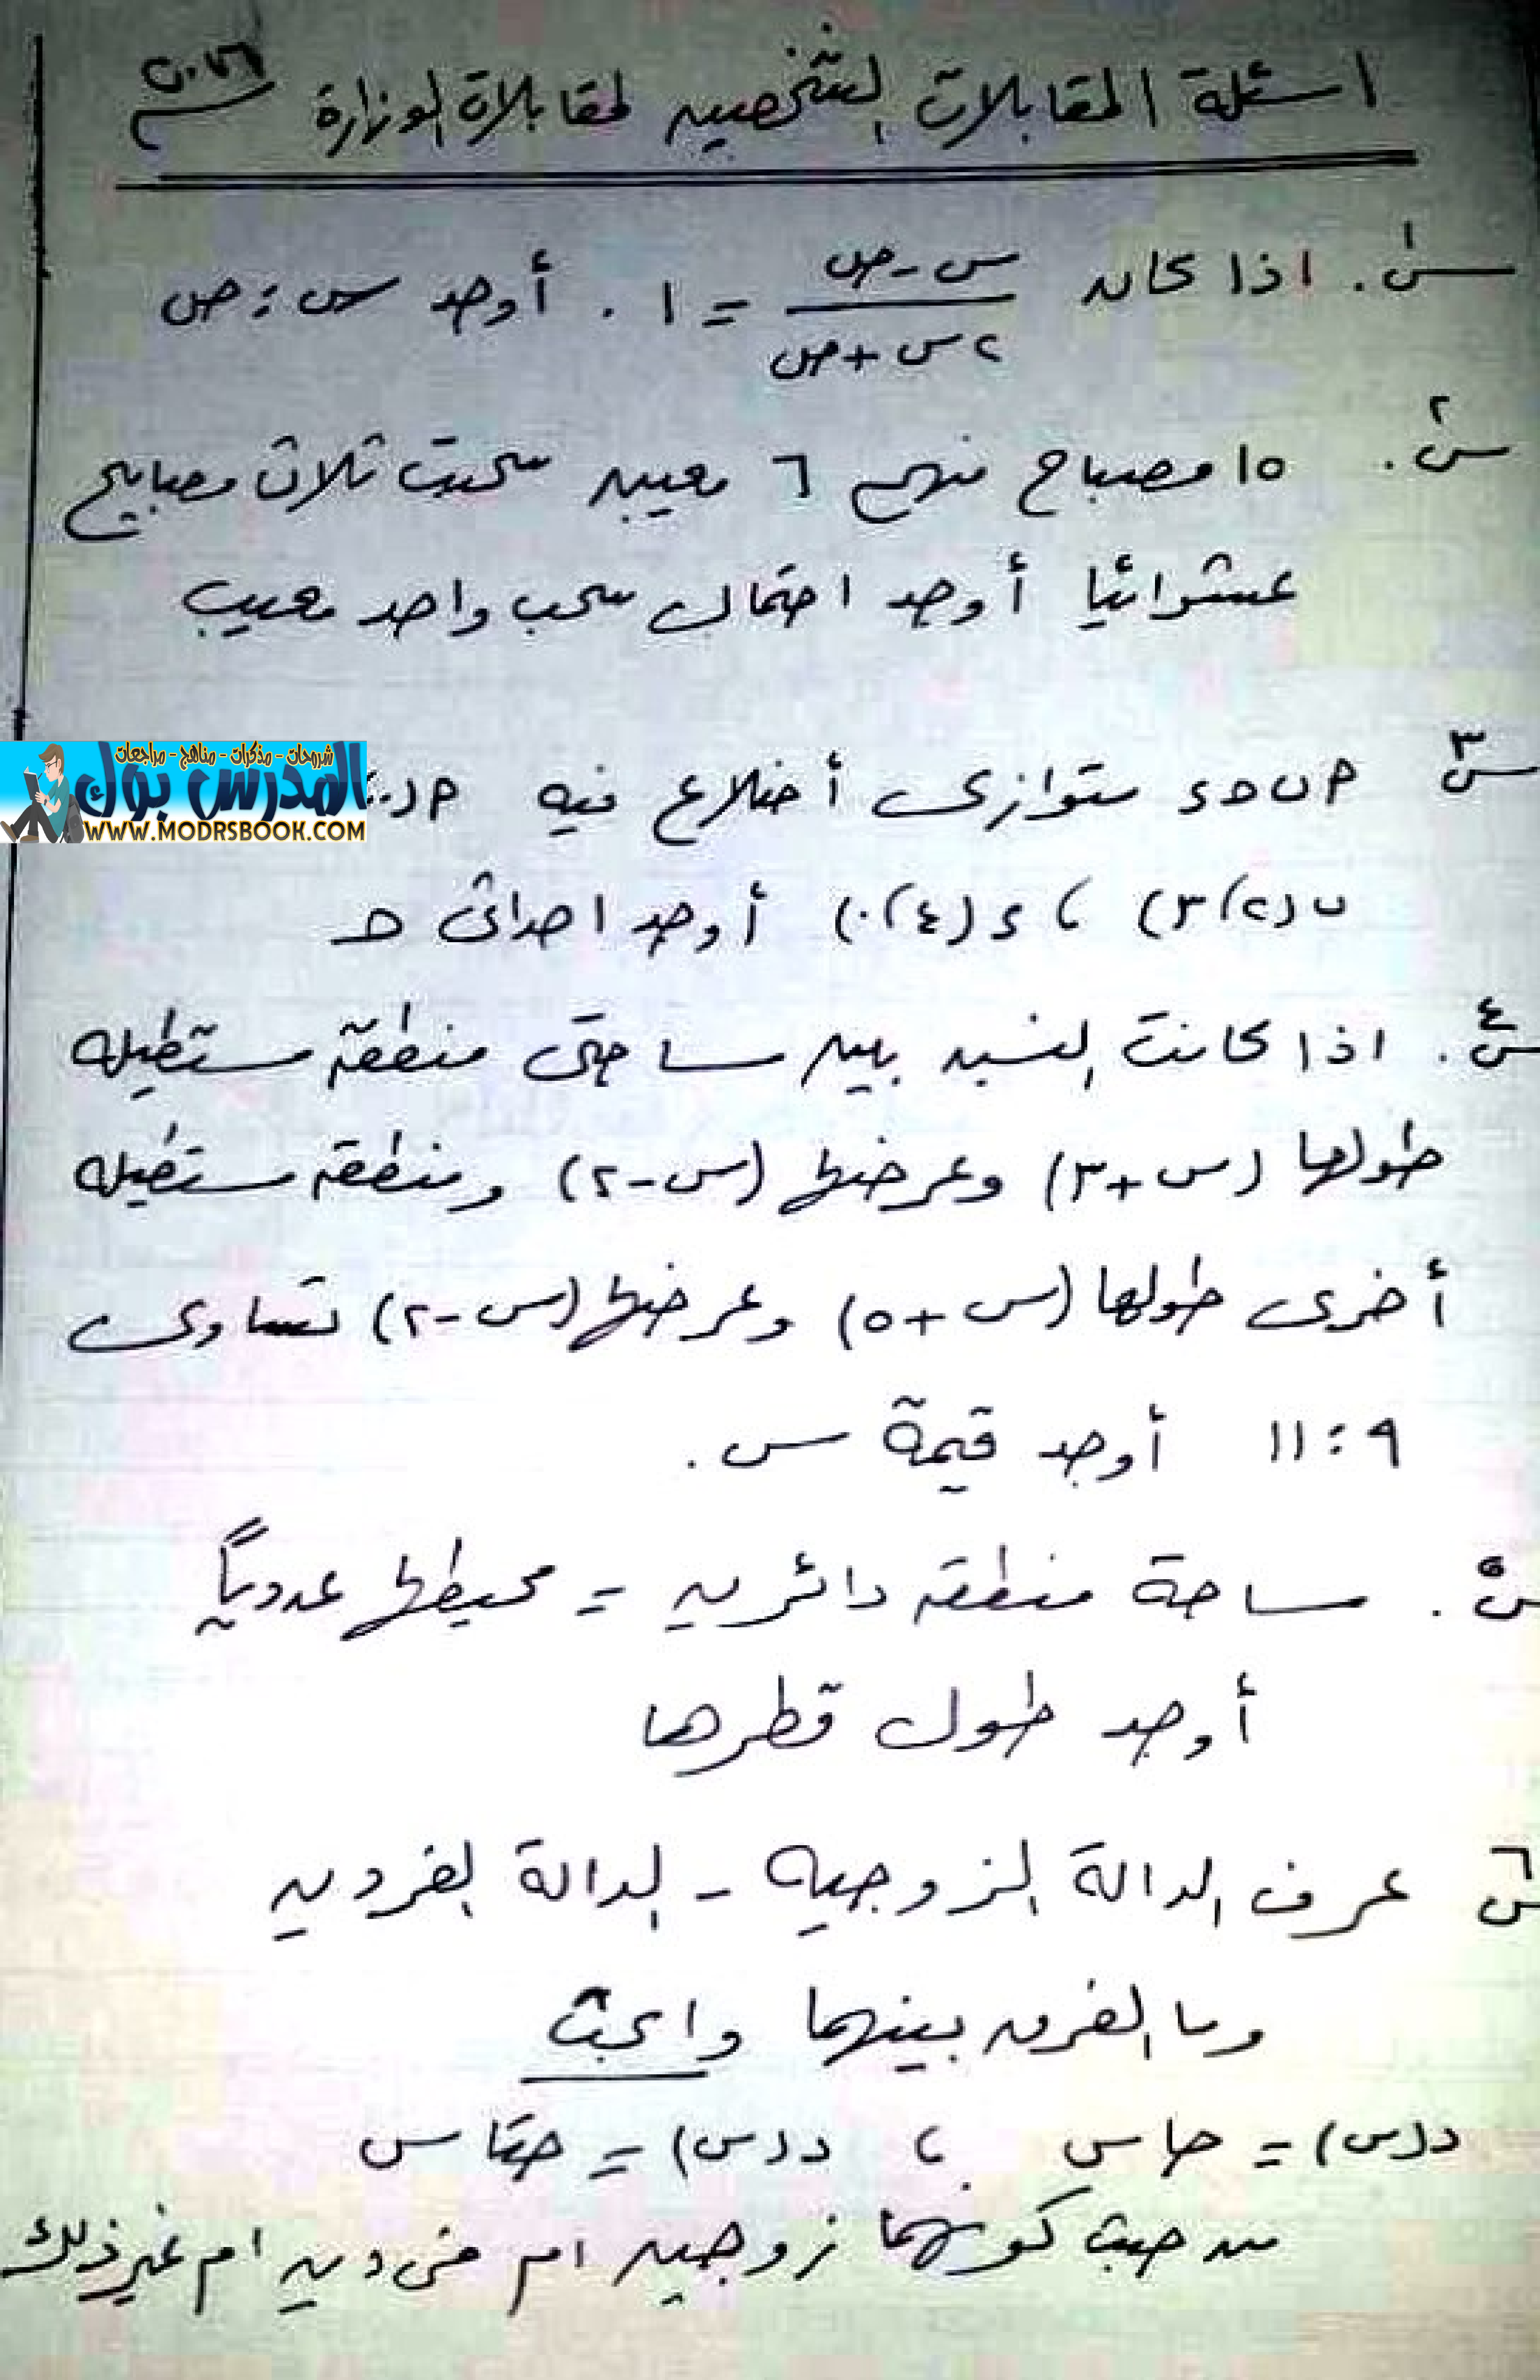 اسئلة المقابلات الشخصيه لمقابلات الوزارة
س١. اذا كان (س - ص)/(٢س + ص) = ١ . أوجد س : ص
س٢. ١٥ مصباح منهم ٦ معيبه سحبت ثلاث مصابيح
عشوائيا أوجد احتمال سحب واحد معيب
المدرس بوك
شروحات - مذكرات - مناهج - مراجعات
WWW.MODRSBOOK.COM
س٣ م ب حـ ء متوازى أضلاع فيه م
ب (٢، ٣) ، ء (٤، ٠) أوجد احداثى حـ
س٤. اذا كانت النسبه بين مساحتى منطقه مستطيله
طولها (س + ٣) وعرضها (س - ٢) ومنطقه مستطيله
أخرى طولها (س + ٥) وعرضها (س - ٢) تساوى
٩ : ١١ أوجد قيمة س .
س٥. مساحة منطقه دائريه = محيطها عدديًا
أوجد طول قطرها
س٦ عرف الدالة الزوجيه - الدالة الفرديه
وما الفرق بينهما وابحث
د(س) = حا س ، د(س) = حتا س
من حيث كونهما زوجيه ام فرديه ام غير ذلك